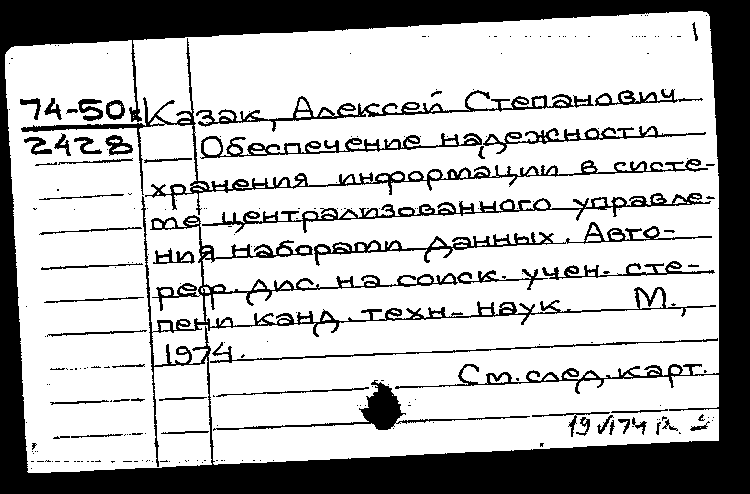 1
74-50к Казак, Алексей Степанович
2428 Обеспечение надежности
хранения информации в систе-
ме централизованного управле-
ния наборами данных. Авто-
реф. дис. на соиск. учен. сте-
пени канд. техн. наук. М.,
1974.
См. след. карт.
19 VI 74